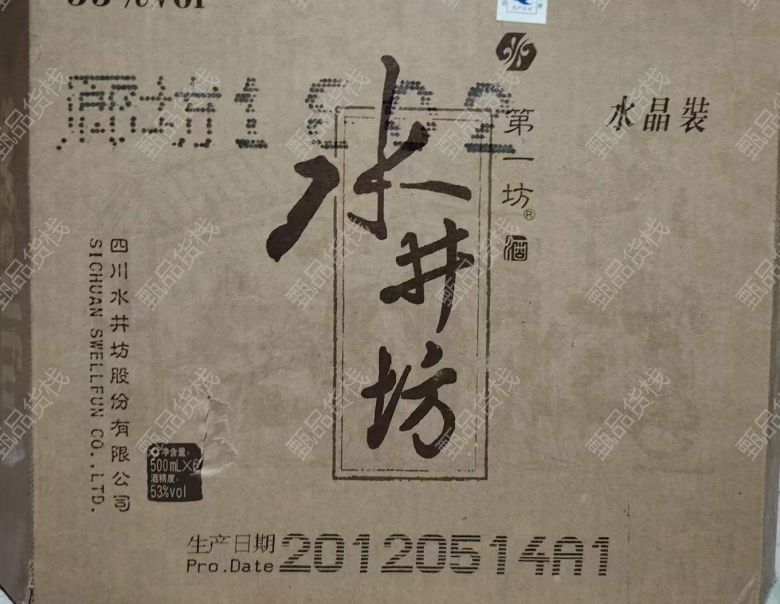 53%vol
廊坊1802
水井坊
第一坊®
酒
水晶装
四川水井坊股份有限公司
SICHUAN SWELLFUN CO.,LTD.
净含量:
500mL×6
酒精度:
53%vol
生产日期
Pro.Date
20120514A1
甄品货栈